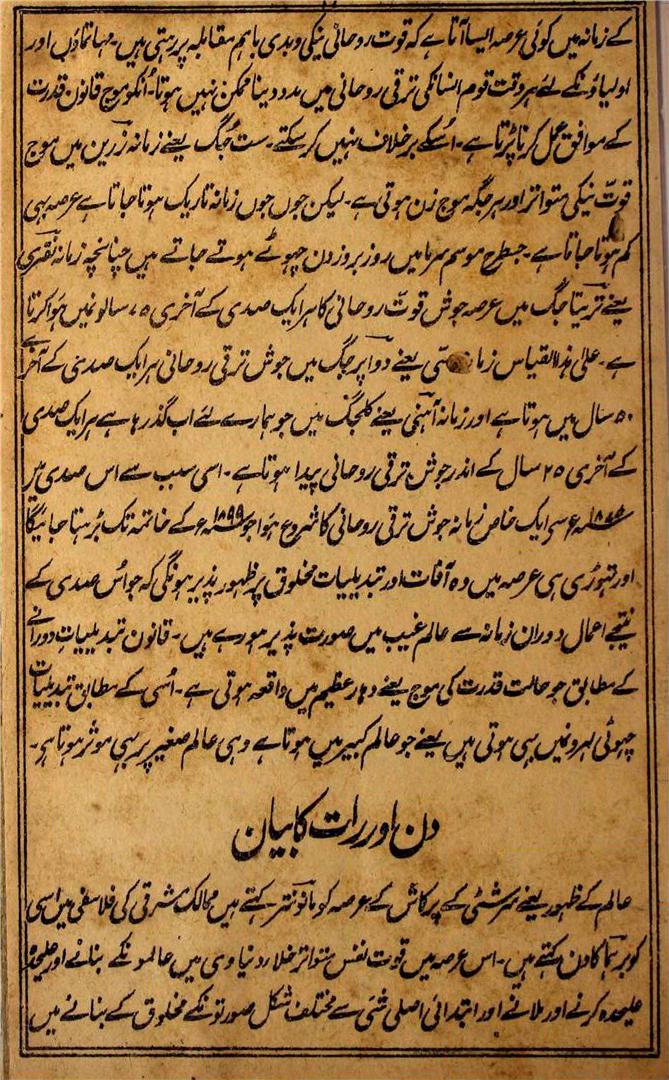 کے زمانہ میں کوئی عرصہ ایسا آتا ہے کہ قوت روحانی نیکی و بدی باہم مقابلہ پر رہتی ہیں۔ مہاتماؤں اور
اولیاؤنکے لئے ہر وقت قوم انسانکی ترقی روحانی میں مدد دینا ممکن نہیں ہوتا۔ اُنکو موج قانون قدرت
کے موافق عمل کرنا پڑتا ہے۔ اُسکے برخلاف نہیں کر سکتے۔ ست جُگ یعنے زمانہ زرین میں موج
قوتِ نیکی متواتر اور ہر جگہ موج زن ہوتی ہے۔ لیکن جوں جوں زمانہ تاریک ہوتا جاتا ہے عرصہ بہی
کم ہوتا جاتا ہے۔ جسطرح موسم سرما میں روز بروز دن چہوٹے ہوتے جاتے ہیں چنانچہ زمانہ نقری
یعنے تریتا جگ میں عرصہ جوش قوتِ روحانی کا ہر ایک صدی کے آخری ۷۵ سالونمیں ہوا کرتا
ہے۔ علیٰ ہذا القیاس یعنے دواپر جگ میں جوش ترقی روحانی ہر ایک صدی کے آخری
۵۰ سال میں ہوتا ہے اور زمانہ آہنی یعنے کلجگ میں جو ہمارے لئے اب گذر رہا ہے ہر ایک صدی
کے آخری ۲۵ سال کے اندر جوش ترقی روحانی پیدا ہوتا ہے۔ اسی سبب سے اس صدی میں
۱۸۷۵ء سے ایک خاص زمانہ جوش ترقی روحانی کا شروع ہوا جو ۱۸۹۹ء کے خاتمہ تک بڑہتا جائیگا
اور تہوڑی ہی عرصہ میں وہ آفات اور تبدیلیات مخلوق پر ظہور پذیر ہونگی کہ جو اُس صدی کے
نتیجے اعمال دوران زمانہ سے عالم غیب میں صورت پذیر ہو رہے ہیں۔ قانون تبدیلیات دورانی
کے مطابق جو حالت قدرت کی موج یعنے دہار عظیم میں واقعہ ہوتی ہے۔ اُسی کے مطابق تبدیلیات
چہوٹی لہرونمیں بہی ہوتی ہیں یعنے جو عالم کبیر میں ہوتا ہے وہی عالم صغیر پر بہی موثر ہوتا ہی۔
دن اور رات کا بیان
عالم کے ظہور یعنے سرشٹی کے پرکاش کے عرصہ کو مانونتر کہتے ہیں ممالک شرقی کی فلاسفی میں اسی
کو برہما کا دن کہتے ہیں۔ اس عرصہ میں قوت نفس متواتر خلاء دنیاوی میں عالمونکے بنانے اور علیحدہ
علیحدہ کرنے اور ملانے اور ابتدائی اصلی شئی سے مختلف شکل صورتونکے مخلوق کے بنانے میں